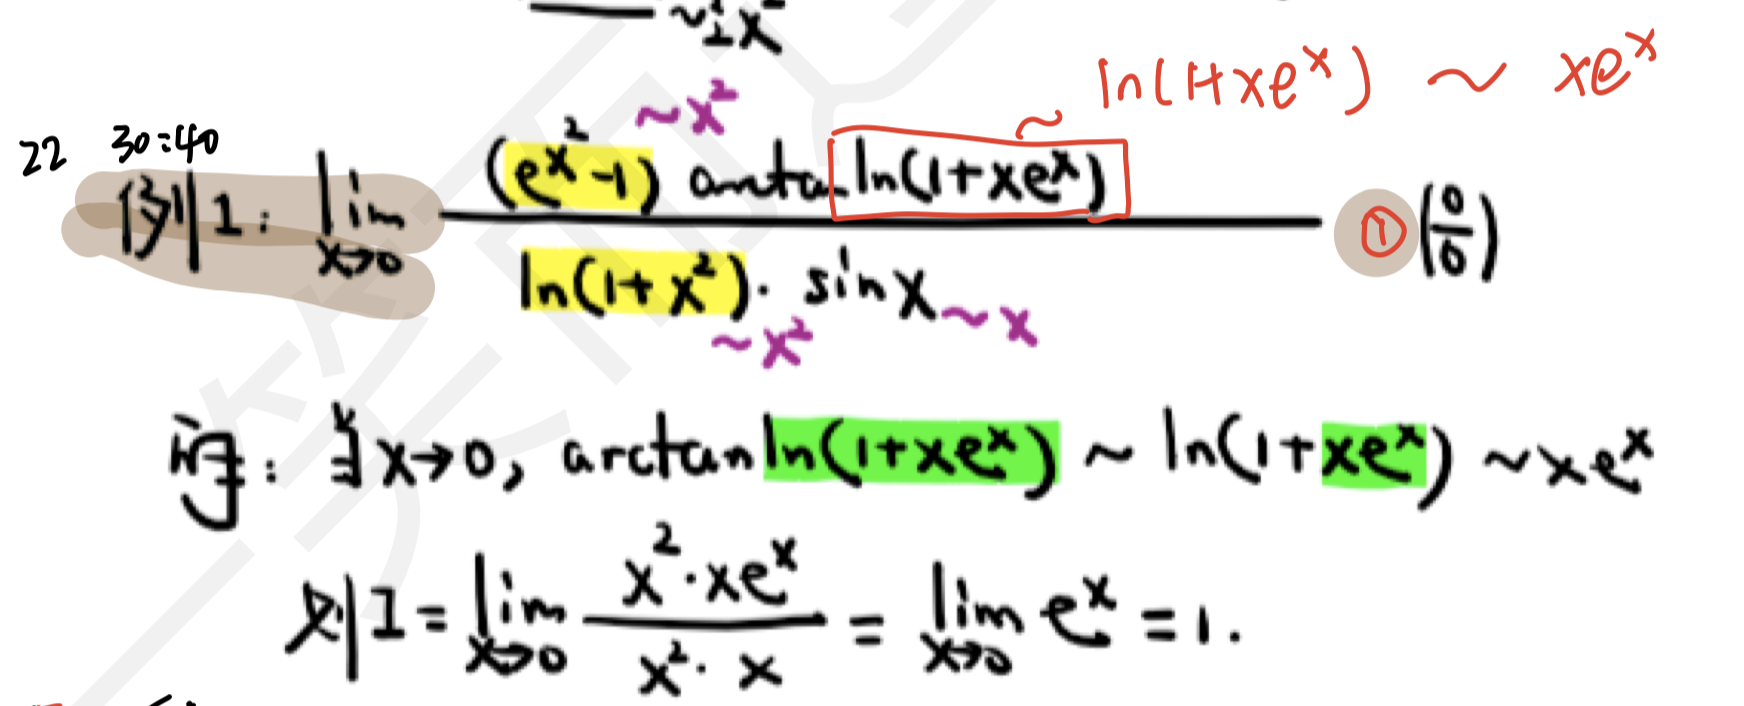 ~½x²
ln(1+xeˣ) ~ xeˣ
~x² ~
22 30:40
例1: lim x→0 (e^x² -1) arctan ln(1+xeˣ) / ln(1+x²)· sin x ① (0/0)
~x² ~x
当x→0, arctan ln(1+xeˣ) ~ ln(1+xeˣ) ~xeˣ
则I = lim x→0 x²·xeˣ / x²· x = lim x→0 eˣ = 1.